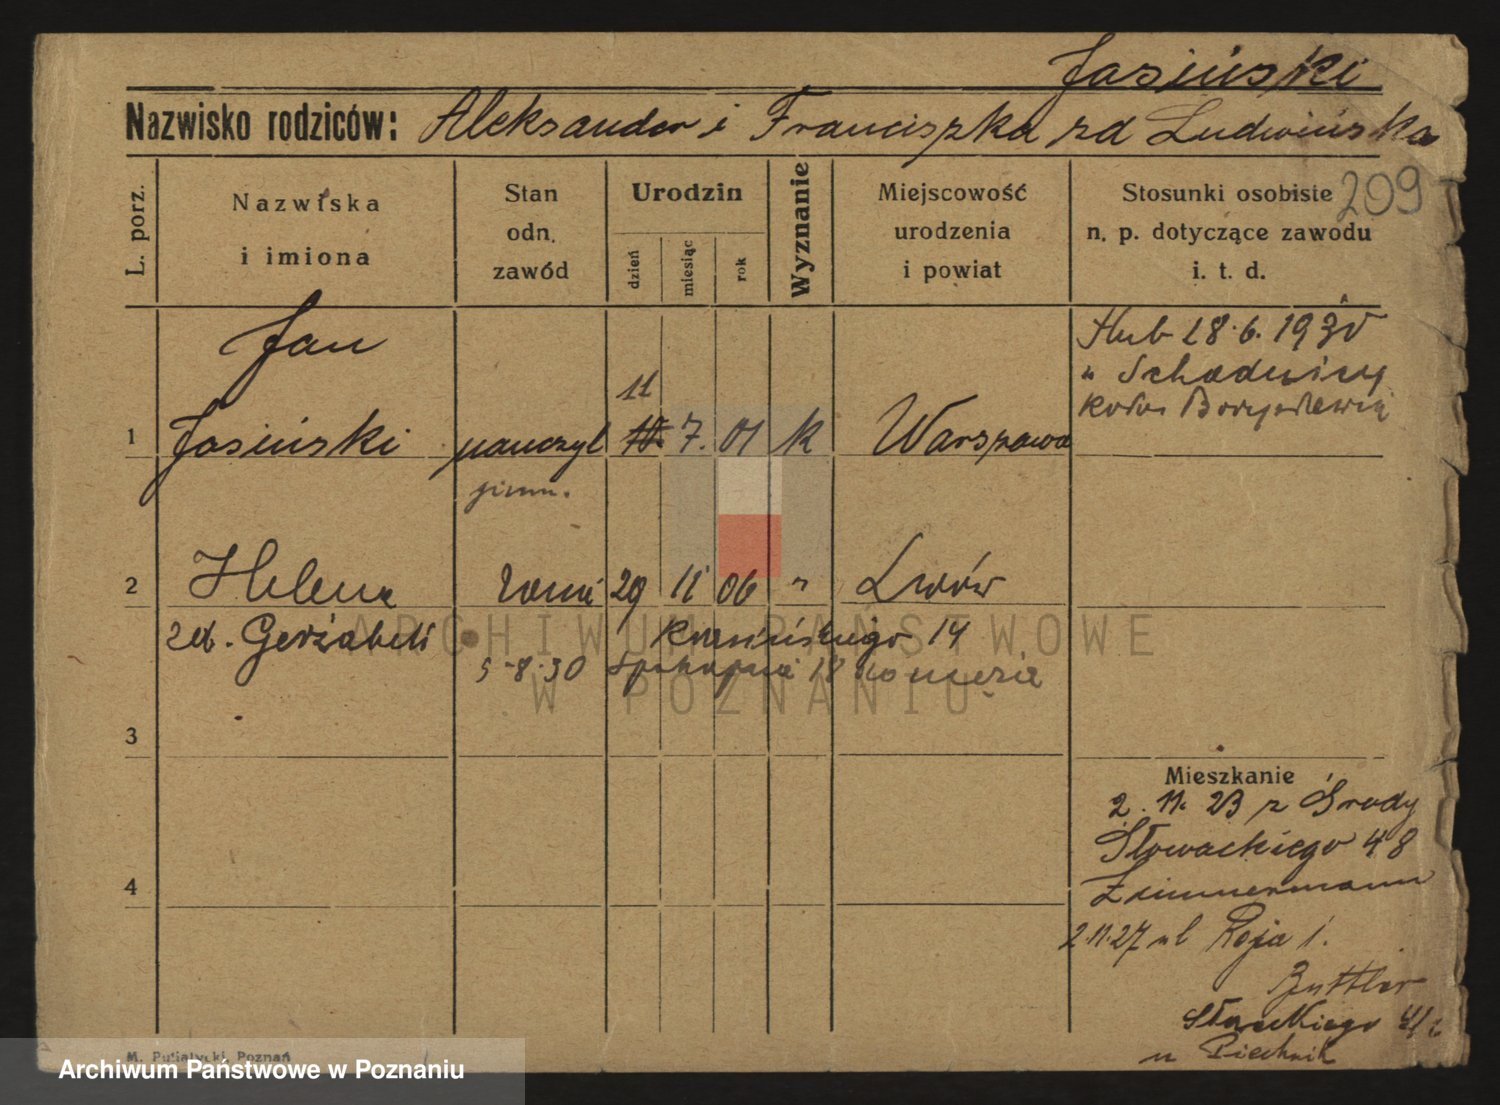 Jasiński
Nazwisko rodziców: Aleksander i Franciszka zd Ludwińska
209
L. porz.
Nazwiska i imiona
Stan odn. zawód
Urodzin
dzień
miesiąc
rok
Wyznanie
Miejscowość urodzenia i powiat
Stosunki osobiste n. p. dotyczące zawodu i. t. d.
Jan
Ślub 28.6.1930
w Schodnicy
koło Borysławia
11
1 Jasiński nauczyl 10. 7. 01 k Warszawa
gimn.
2 Helena żona 29 11 06 " Lwów
zd. Gerżabek Krasińskiego 14
5-8-30 Spokojna 18
3
Mieszkanie
2. 11. 23 z Środy
Słowackiego 48
Zimmermann
4
2.11.27 ul Reja 1.
Buttler
Słowackiego
u Piechnik
M. Putiatycki, Poznań
ARCHIWUM PAŃSTWOWE
W POZNANIU
Archiwum Państwowe w Poznaniu